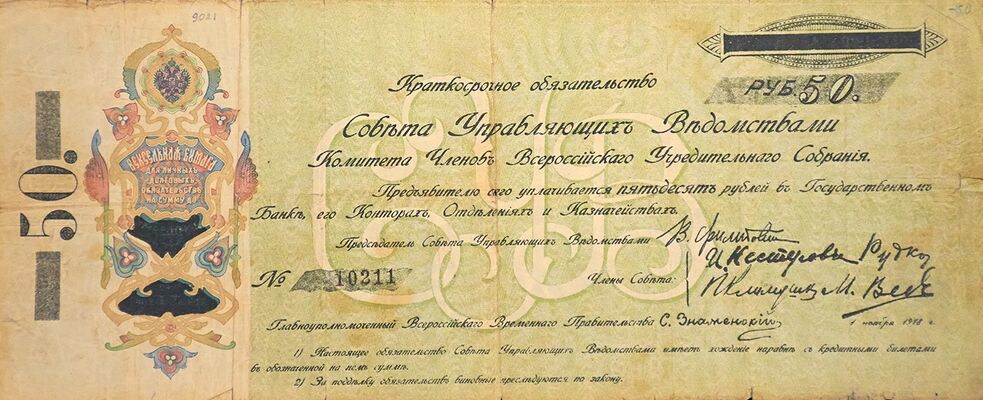 9021
-50
50.
ВЕКСЕЛЬНАЯ БУМАГА
ДЛЯ ЛИЧНЫХЪ
ДОЛГОВЫХЪ
ОБЯЗАТЕЛЬСТВЪ
НА СУММУ ДО
РУБ. 50.
Краткосрочное обязательство
Совѣта Управляющихъ Вѣдомствами
Комитета Членовъ Всероссійскаго Учредительнаго Собранія.
Предъявителю сего уплачивается пятьдесятъ рублей въ Государственномъ
Банкѣ, его Конторахъ, Отдѣленіяхъ и Казначействахъ.
Предсѣдатель Совѣта Управляющихъ Вѣдомствами В. Филипповскій
№ 10211
Члены Совѣта: И. Нестеровъ Рудко
П. Климушкинъ М. Веденяпинъ
Главноуполномоченный Всероссійскаго Временнаго Правительства С. Знаменскій
1 ноября 1918 г.
1) Настоящее обязательство Совѣта Управляющихъ Вѣдомствами имѣетъ хожденіе наравнѣ съ кредитными билетами
въ обозначенной на немъ суммѣ.
2) За поддѣлку обязательствъ виновные преслѣдуются по закону.